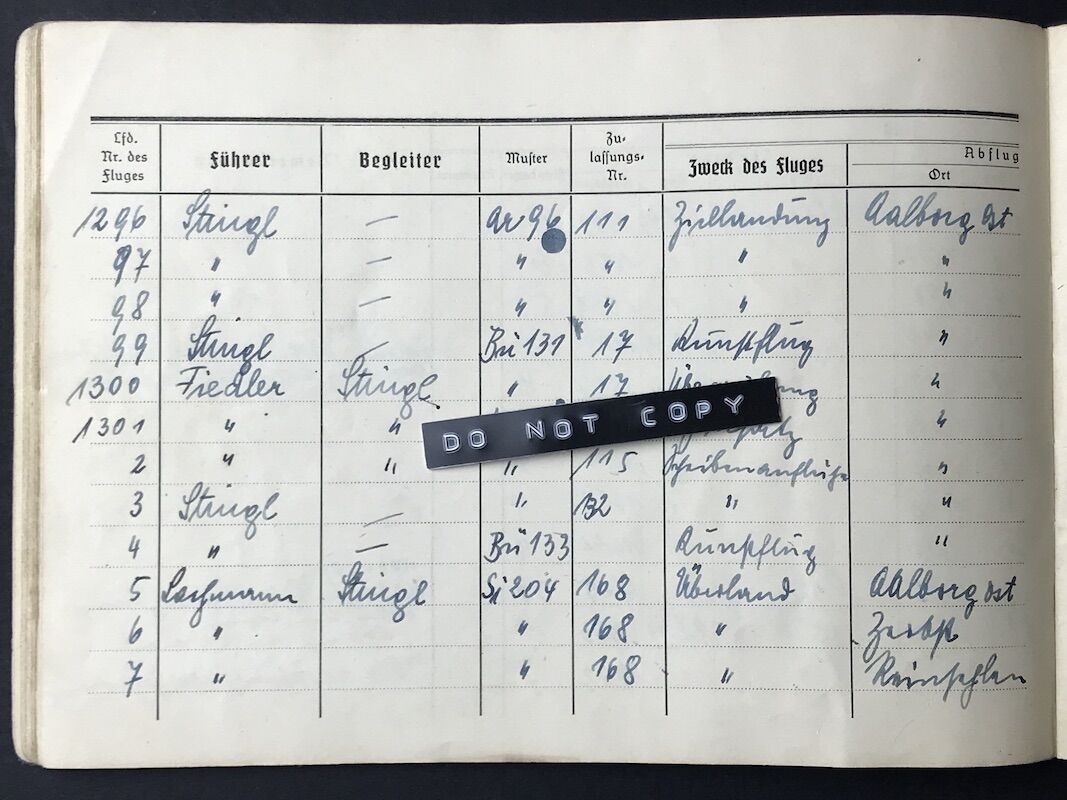 Lfd. Nr. des Fluges Führer Begleiter Muster Zulassungs-Nr. Zweck des Fluges Abflug Ort
1296 Stingl — Ar 96 111 Ziellandung Aalborg Ost
97 " — " " " "
98 " — " " " "
99 Stingl — Bü 131 17 Kunstflug "
1300 Fiedler Stingl " 17 "
1301 " " "
DO NOT COPY
2 " " " 115 Scheibenanflüge "
3 Stingl — " 132 " "
4 " — Bü 133 Kunstflug "
5 Lachmann Stingl Si 204 168 Überland Aalborg Ost
6 " " 168 " Zerbst
7 " " 168 " Reinsehlen